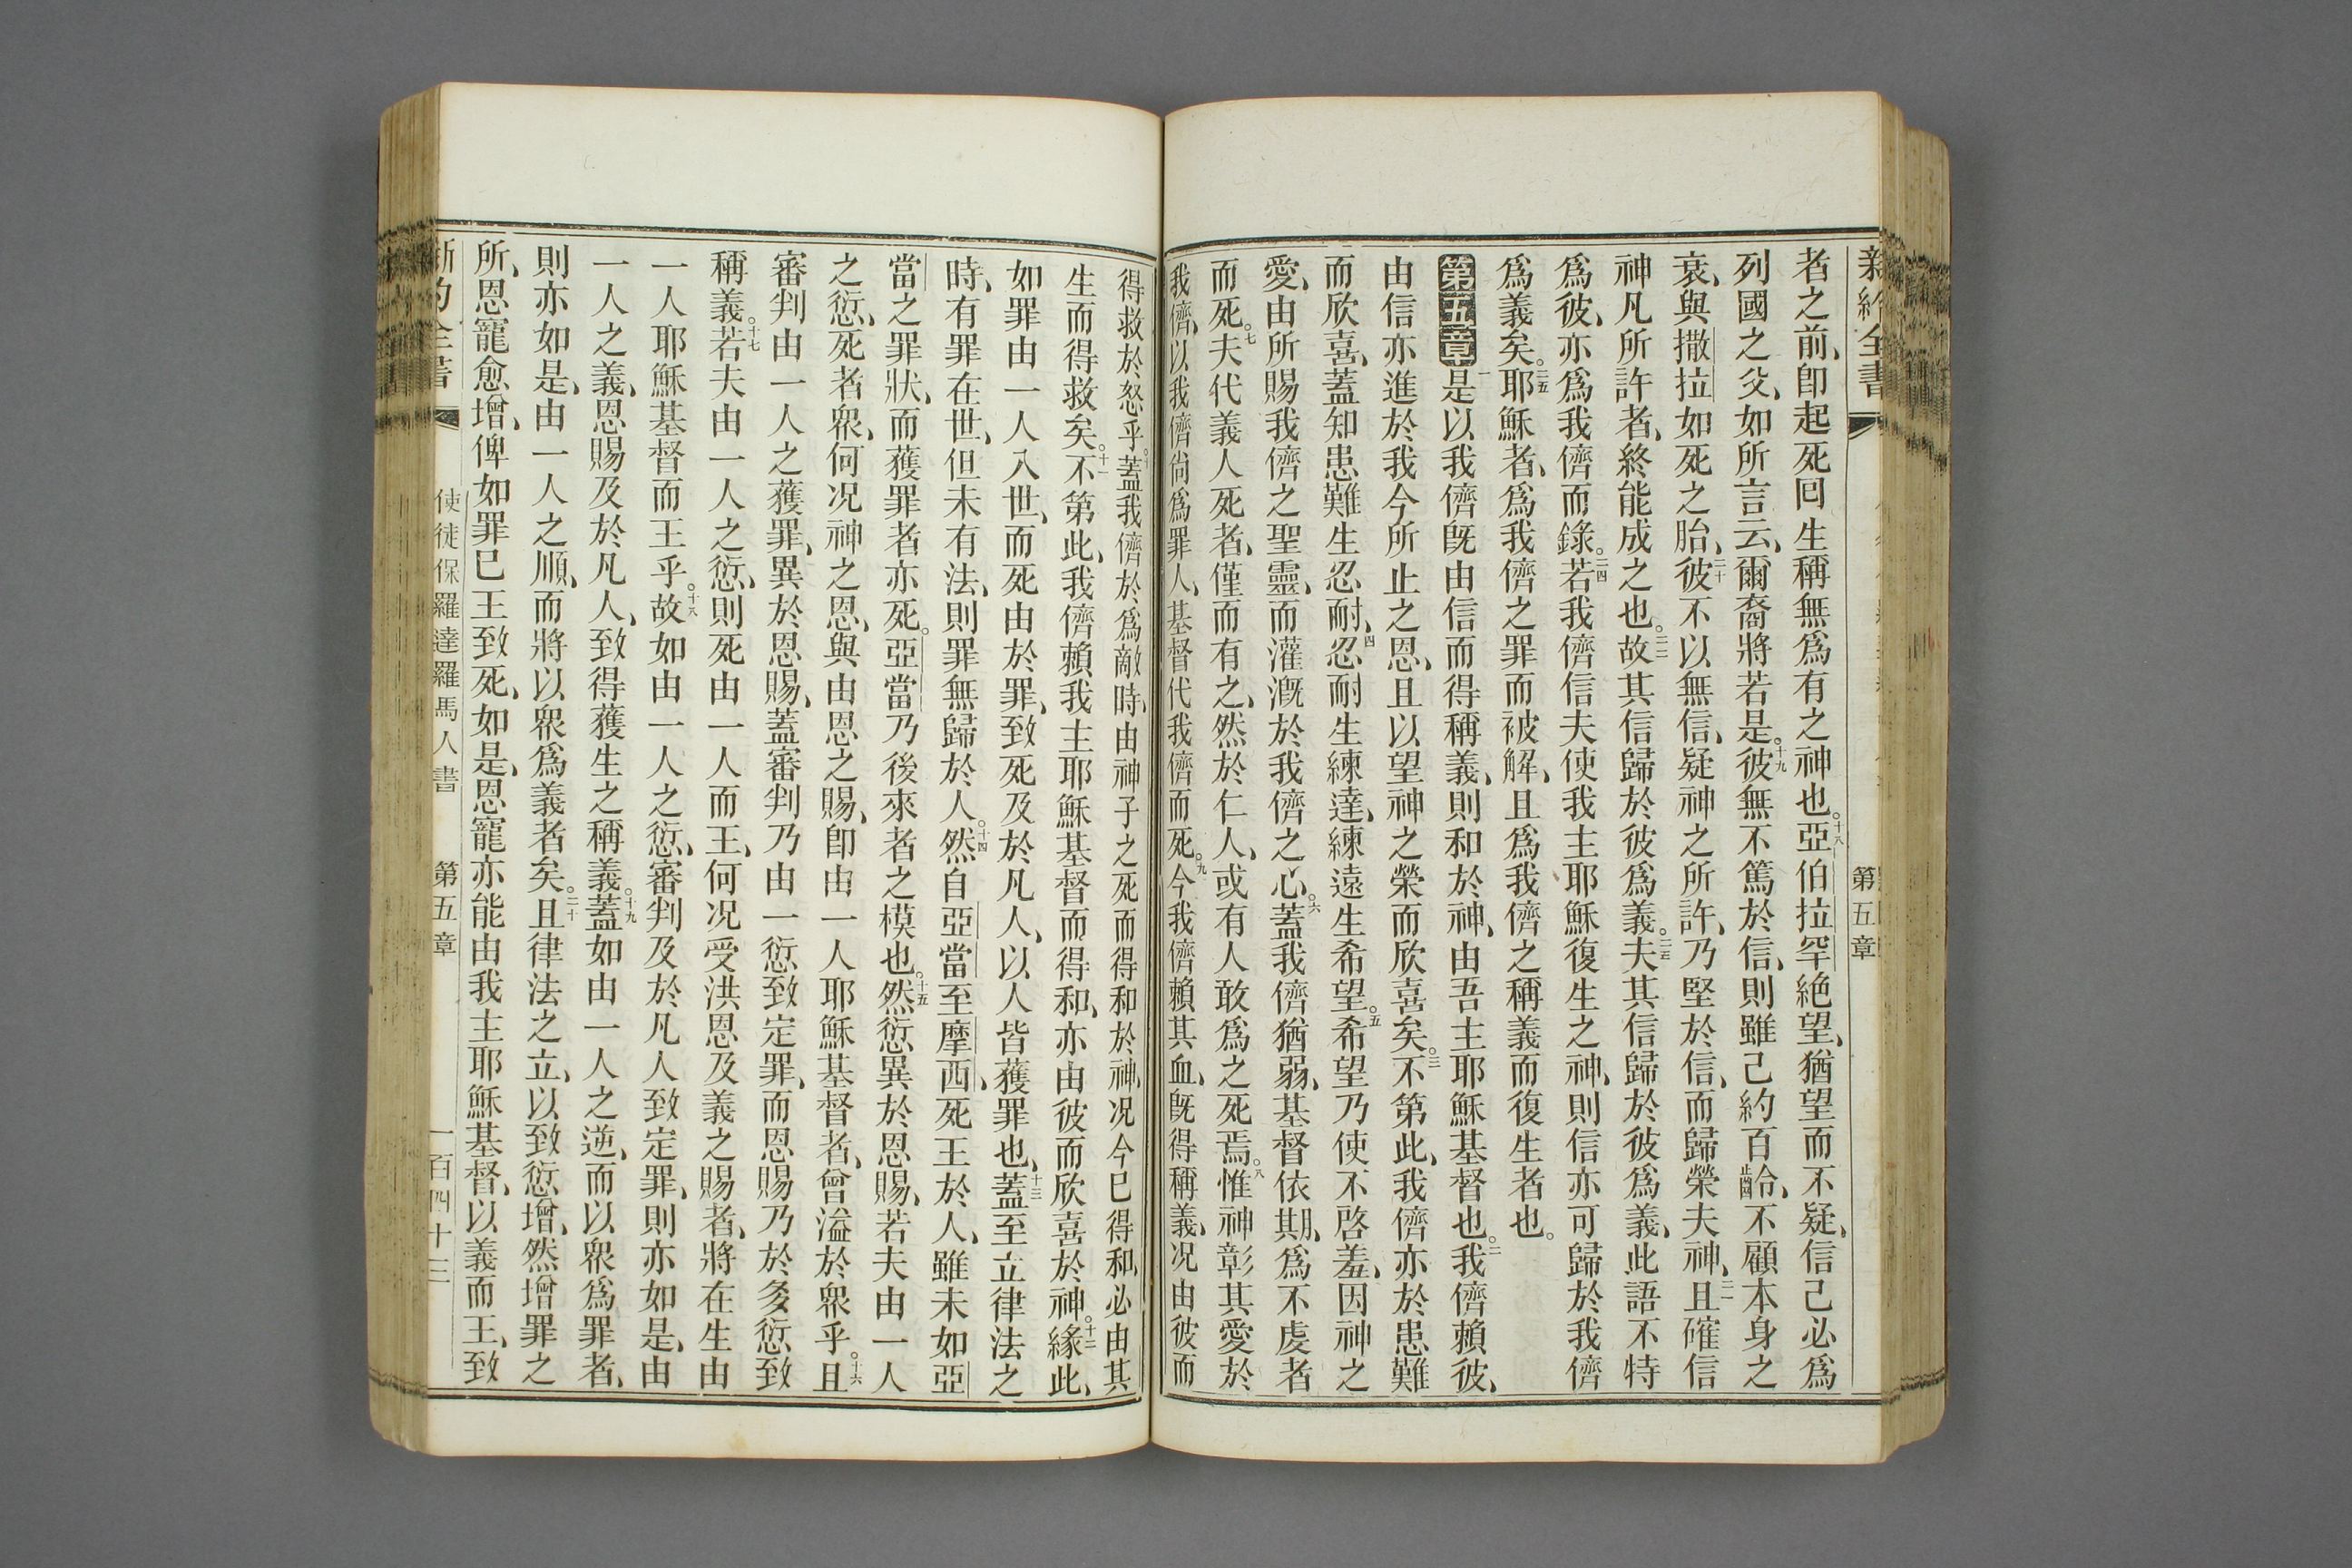 新約全書
第五章
者之前、卽起死囘生稱無爲有之神也。十八亞伯拉罕絶望、猶望而不疑、信己必爲
列國之父、如所言云、爾裔將若是。十九彼無不篤於信、則雖己約百齡、不顧本身之
衰、與撒拉如死之胎、二十彼不以無信、疑神之所許、乃堅於信、而歸榮夫神、二一且確信
神凡所許者、終能成之也。二二故其信歸於彼爲義。二三夫其信歸於彼爲義、此語不特
爲彼、亦爲我儕而錄。二四若我儕信夫使我主耶穌復生之神、則信亦可歸於我儕
爲義矣。二五耶穌者、爲我儕之罪而被解、且爲我儕之稱義而復生者也。
第五章 一是以我儕旣由信而得稱義、則和於神、由吾主耶穌基督也。二我儕賴彼、
由信亦進於我今所止之恩、且以望神之榮而欣喜矣。三不第此、我儕亦於患難
而欣喜、蓋知患難生忍耐、四忍耐生練達、練遠生希望。五希望乃使不啓羞、因神之
愛、由所賜我儕之聖靈、而灌漑於我儕之心。六蓋我儕猶弱、基督依期、爲不虔者
而死。七夫代義人死者、僅而有之、然於仁人、或有人敢爲之死焉。八惟神彰其愛於
我儕、以我儕尙爲罪人、基督代我儕而死。九今我儕賴其血、旣得稱義、况由彼而
得救於怒乎。十蓋我儕於爲敵時、由神子之死而得和於神、况今已得和、必由其
生而得救矣。十一不第此、我儕賴我主耶穌基督而得和、亦由彼而欣喜於神。十二緣此、
如罪由一人入世、而死由於罪、致死及於凡人、以人皆獲罪也、十三蓋至立律法之
時、有罪在世、但未有法、則罪無歸於人。十四然自亞當至摩西、死王於人、雖未如亞
當之罪狀、而獲罪者亦死。亞當乃後來者之模也。十五然愆異於恩賜、若夫由一人
之愆、死者衆、何况神之恩、與由恩之賜、卽由一人耶穌基督者、曾溢於衆乎。十六且
審判由一人之獲罪、異於恩賜、蓋審判乃由一愆致定罪、而恩賜乃於多愆致
稱義。十七若夫由一人之愆、則死由一人而王、何况受洪恩及義之賜者、將在生由
一人耶穌基督而王乎。十八故如由一人之愆、審判及於凡人致定罪、則亦如是、由
一人之義、恩賜及於凡人、致得獲生之稱義。十九蓋如由一人之逆、而以衆爲罪者、
則亦如是、由一人之順、而將以衆爲義者矣。二十且律法之立、以致愆增、然增罪之
所、恩寵愈增、俾如罪已王致死、如是、恩寵亦能由我主耶穌基督、以義而王、致
新約全書
使徒保羅達羅馬人書
第五章
一百四十三